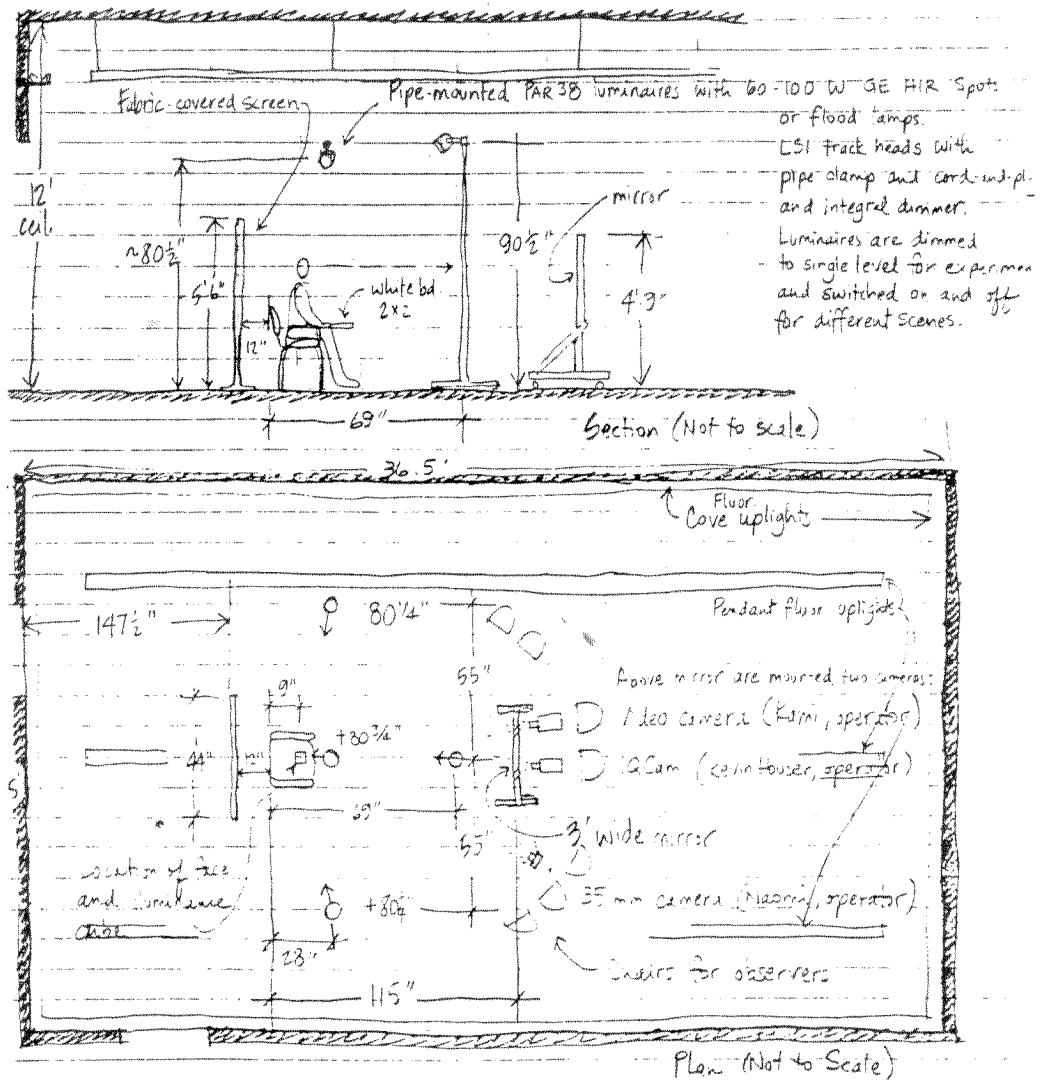 Fabric-covered screen
Pipe-mounted PAR 38 luminaires with 60-100 W GE HIR Spots
or flood lamps.
LSI track heads with
pipe clamp and cord-and-pl-
and integral dimmer.
Luminaires are dimmed
to single level for experimen
and switched on and off
for different scenes.
12'
ceil.
~80½"
5'6"
12"
white bd
2×2
90½"
mirror
4'9"
69"
Section (Not to scale)
36.5'
Fluor.
Cove uplights
147½"
80¼"
Pendant fluor uplights
55"
Above mirror are mounted two cameras:
Video camera (Kami, operator)
QCam (Kevin Houser, operator)
9"
44"
12"
69"
55"
3' wide mirror
Location of face
and
35 mm camera (Naomi, operator)
28"
Chairs for observers
115"
Plan (Not to Scale)